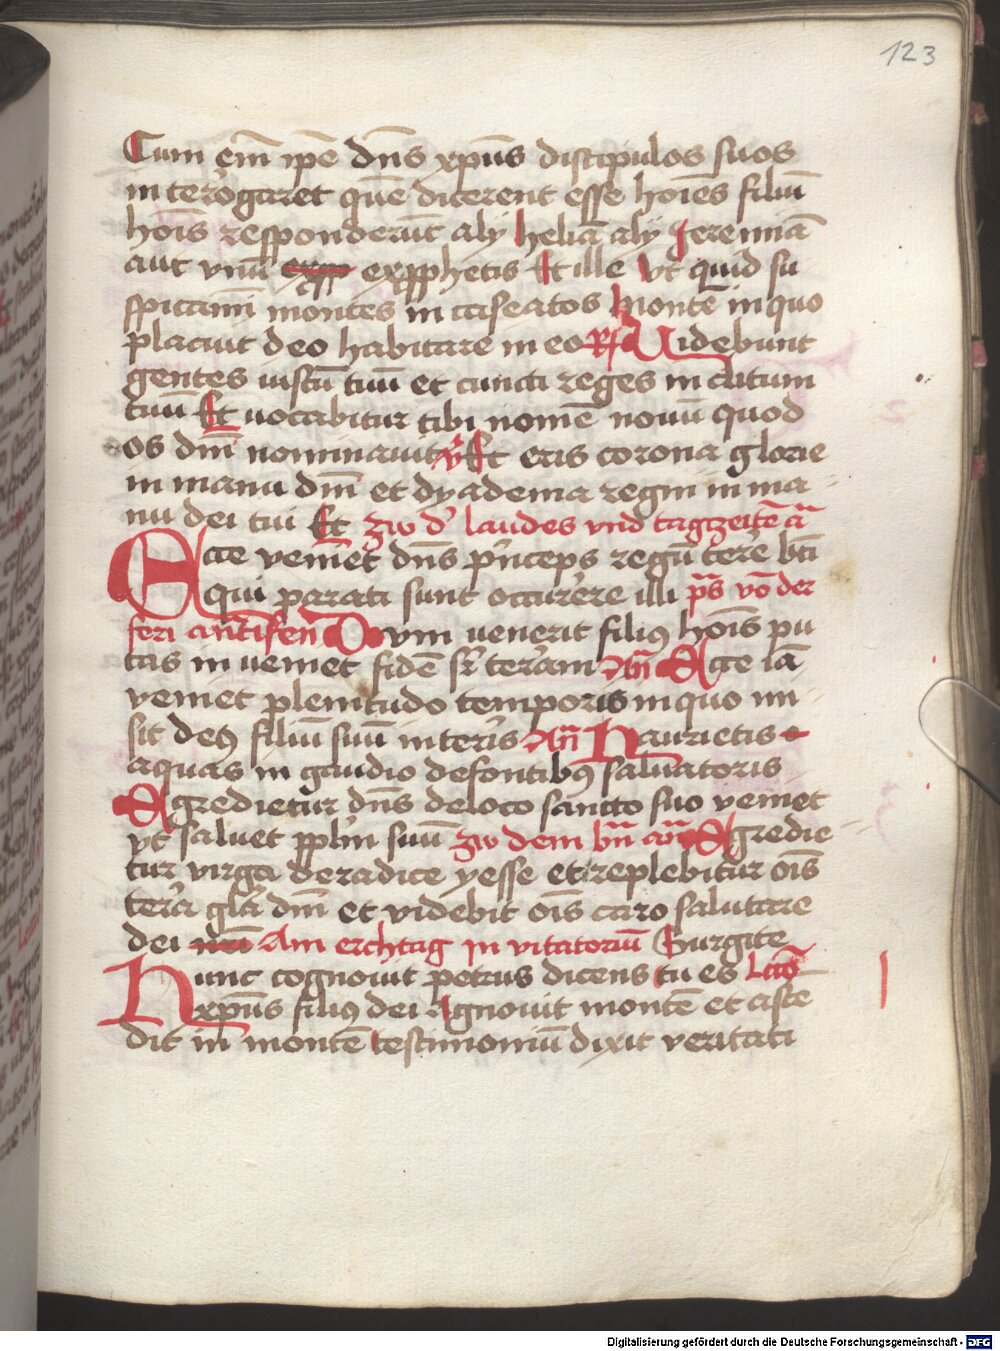 123
Cum em̄ ip̄e dn̄s xpūs discipulos suos
interōgaret quē dicerent esse hoīes filiū
hoīs responderūt alij heliā alij Jeremiā
aut vnū exprophetis Et ille Vt quid su
spicamī montes in caseatos Montē in quo
placuit deo habitare in eo R Videbunt
gentes iustū tuū et cuncti reges inclitum
tuū Et uocabitur tibi nomē nouū quod
os dm̄i nominauit V Et eris corona glorie
in manu dm̄i et dyadema regni in ma-
nu dei tui Et zw d' laudes vnd tagzeitē ā
Ecce veniet dn̄s p'nceps regū tere bt̄i
qui parati sunt occurere illi p̄s vō der
feri antifen Dvm venerit filiꝯ hoīs pu
tas inveniet fidē sr̄ teram An̄ Ecce iā
veniet plenitudo temporis inquo mi
sit deꝯ filiū suū in teris An̄ Haurietis
aquas in gaudio defontibꝯ saluatoris
Egredietur dn̄s deloco sancto suo veniet
vt saluet pplm̄ suū zw dem bn̄ an̄ Egredie
tur virga deradice yesse et replebitur oīs
tera glā dm̄i et videbit oīs caro salutare
dei Am erchtag Jn vitatoriū Surgite
Nunc cognouit petrus dicens tu es Lc̄o
xpūs filiꝯ dei Agnouit montē et asce
dit in montē testimoniū dixit veritati
Digitalisierung gefördert durch die Deutsche Forschungsgemeinschaft - DFG